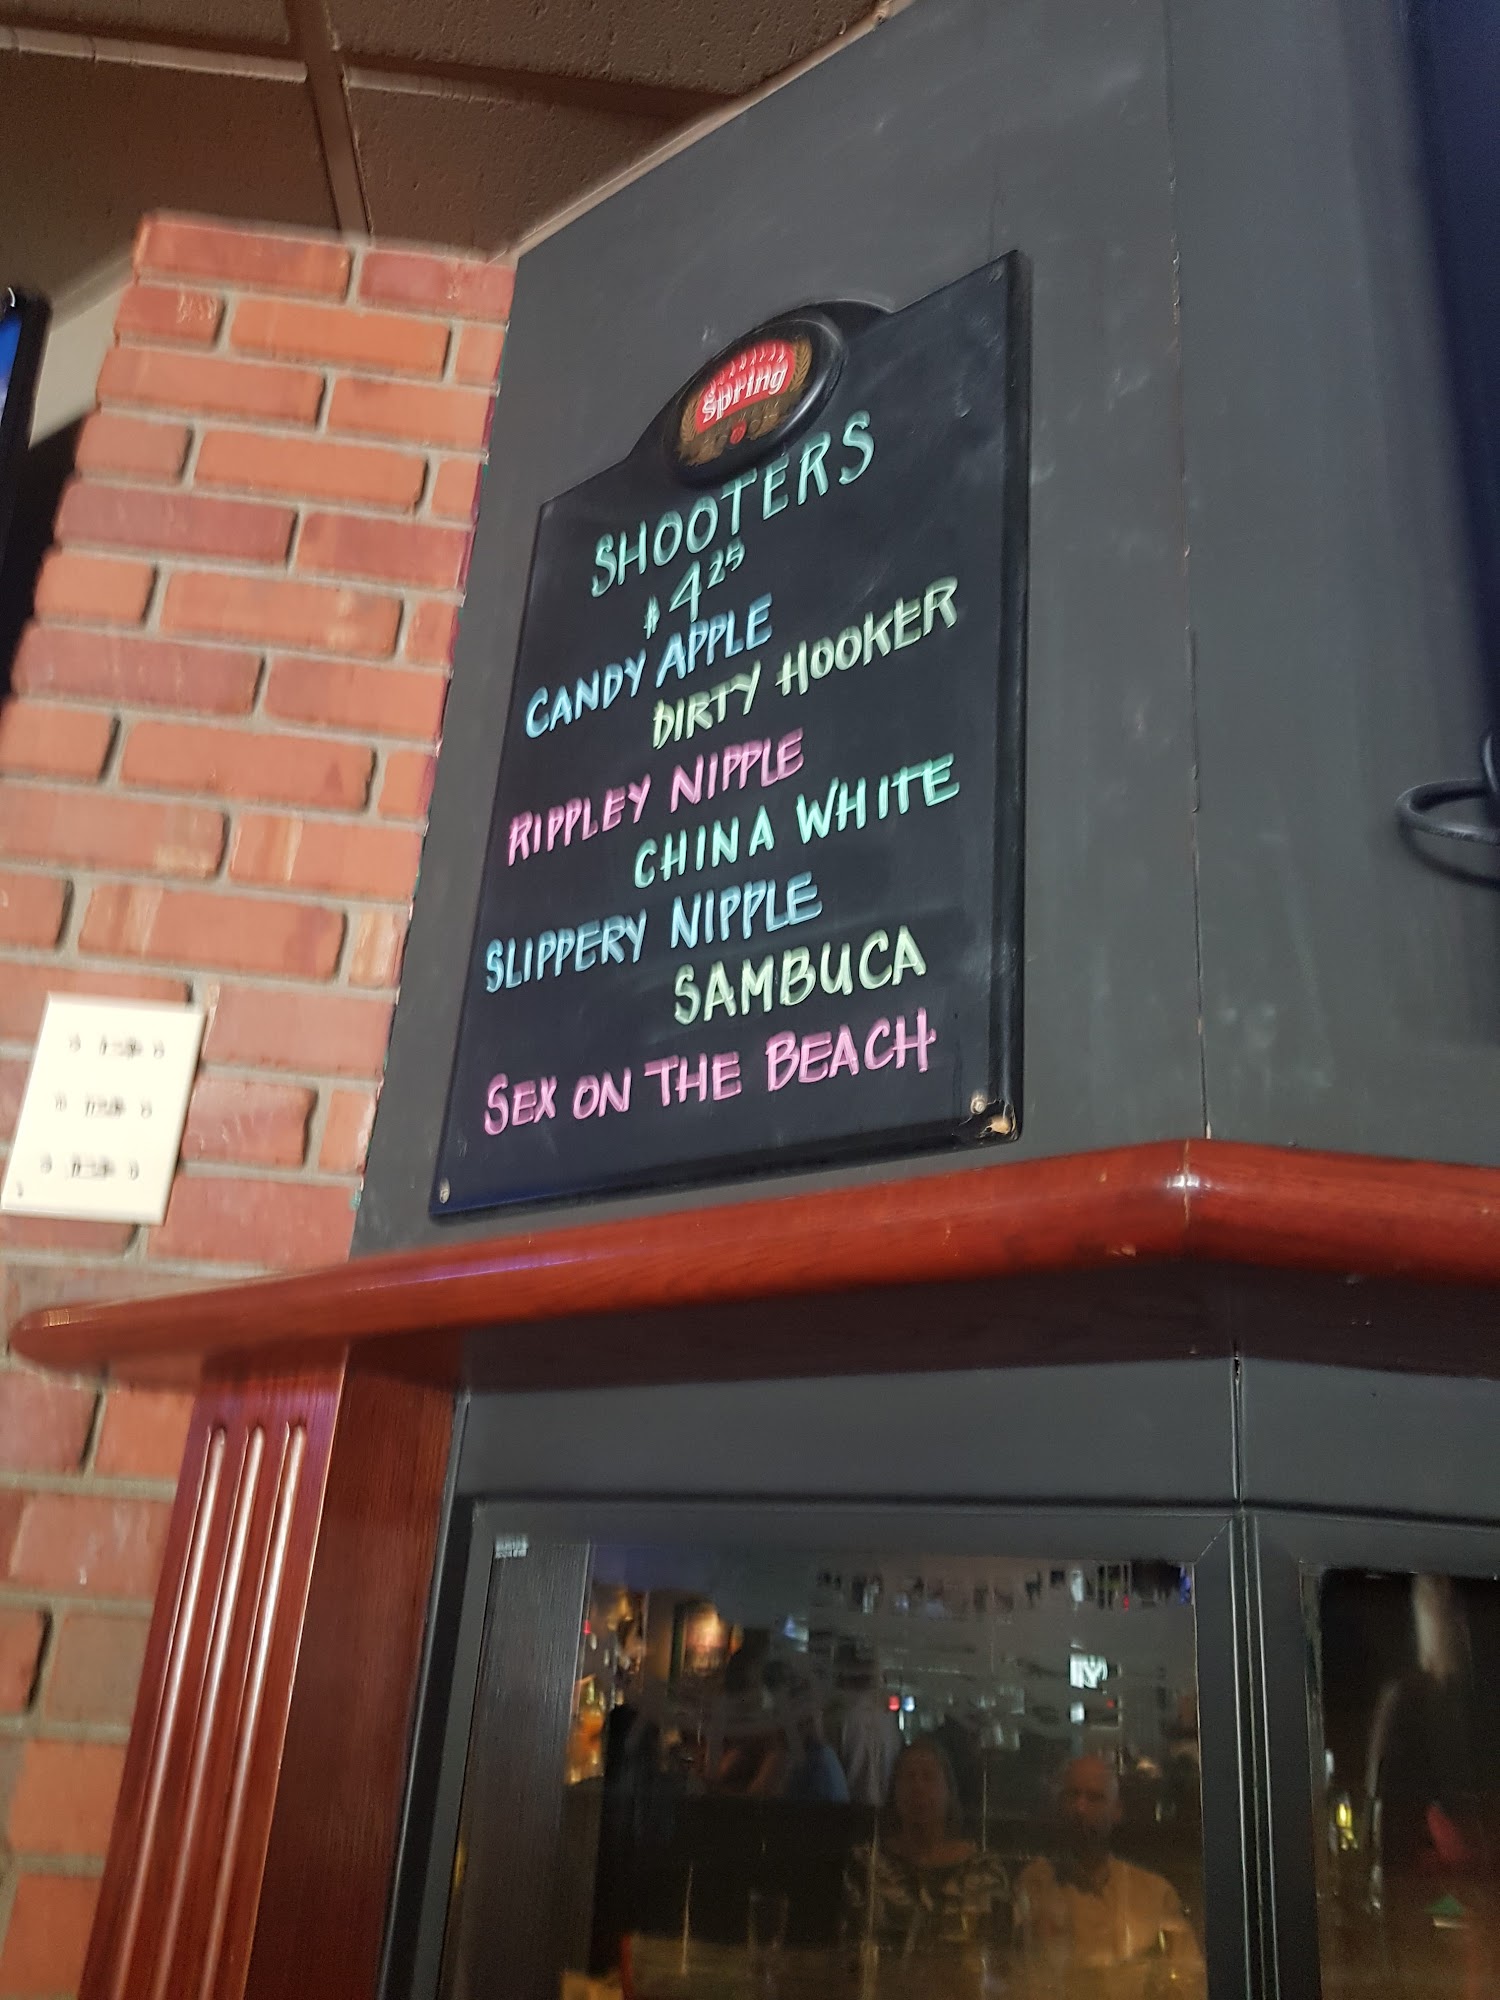 Spring
SHOOTERS
$4 25
CANDY APPLE
DIRTY HOOKER
RIPPLEY NIPPLE
CHINA WHITE
SLIPPERY NIPPLE
SAMBUCA
SEX ON THE BEACH